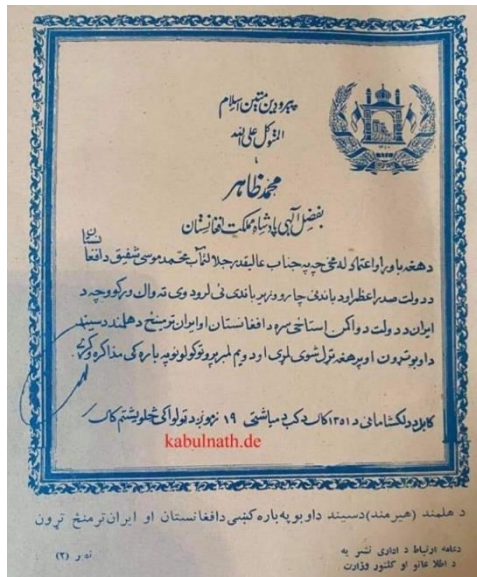 پیرو دین متین اسلام
المتوکل علی الله
محمد ظاهر
بفضل الهی پادشاه مملکت افغانستان
د هغه باور او اعتماد له مخی چه په جناب عالیقدر جلالتمآب محمد موسی شفیق د افغانستان
د دولت صدراعظم او د باندنی چارو وزیر باندی ئی لرو دوی ته واک ورکوو چه د
ایران د دولت د واکمن استاځی سره د افغانستان او ایران ترمینځ د هلمند د سیند
د اوبو تړون او پر هغه تړل شوی لمړی او دویم لمبر پروتوکولونو په باره کی مذاکره وکړی
کابل د دلکشا ماڼی د ۱۳۵۱ کال د کب د میاشتی ۱۹ نهوورځ د ټولواکی څلویښتم کال
kabulnath.de
د هلمند (هیرمند) د سیند د اوبو په باره کښی د افغانستان او ایران ترمنځ تړون
د عامه ارتباط د اداری نشریه
د اطلاعاتو او کلتور وزارت
نمبر (۲)